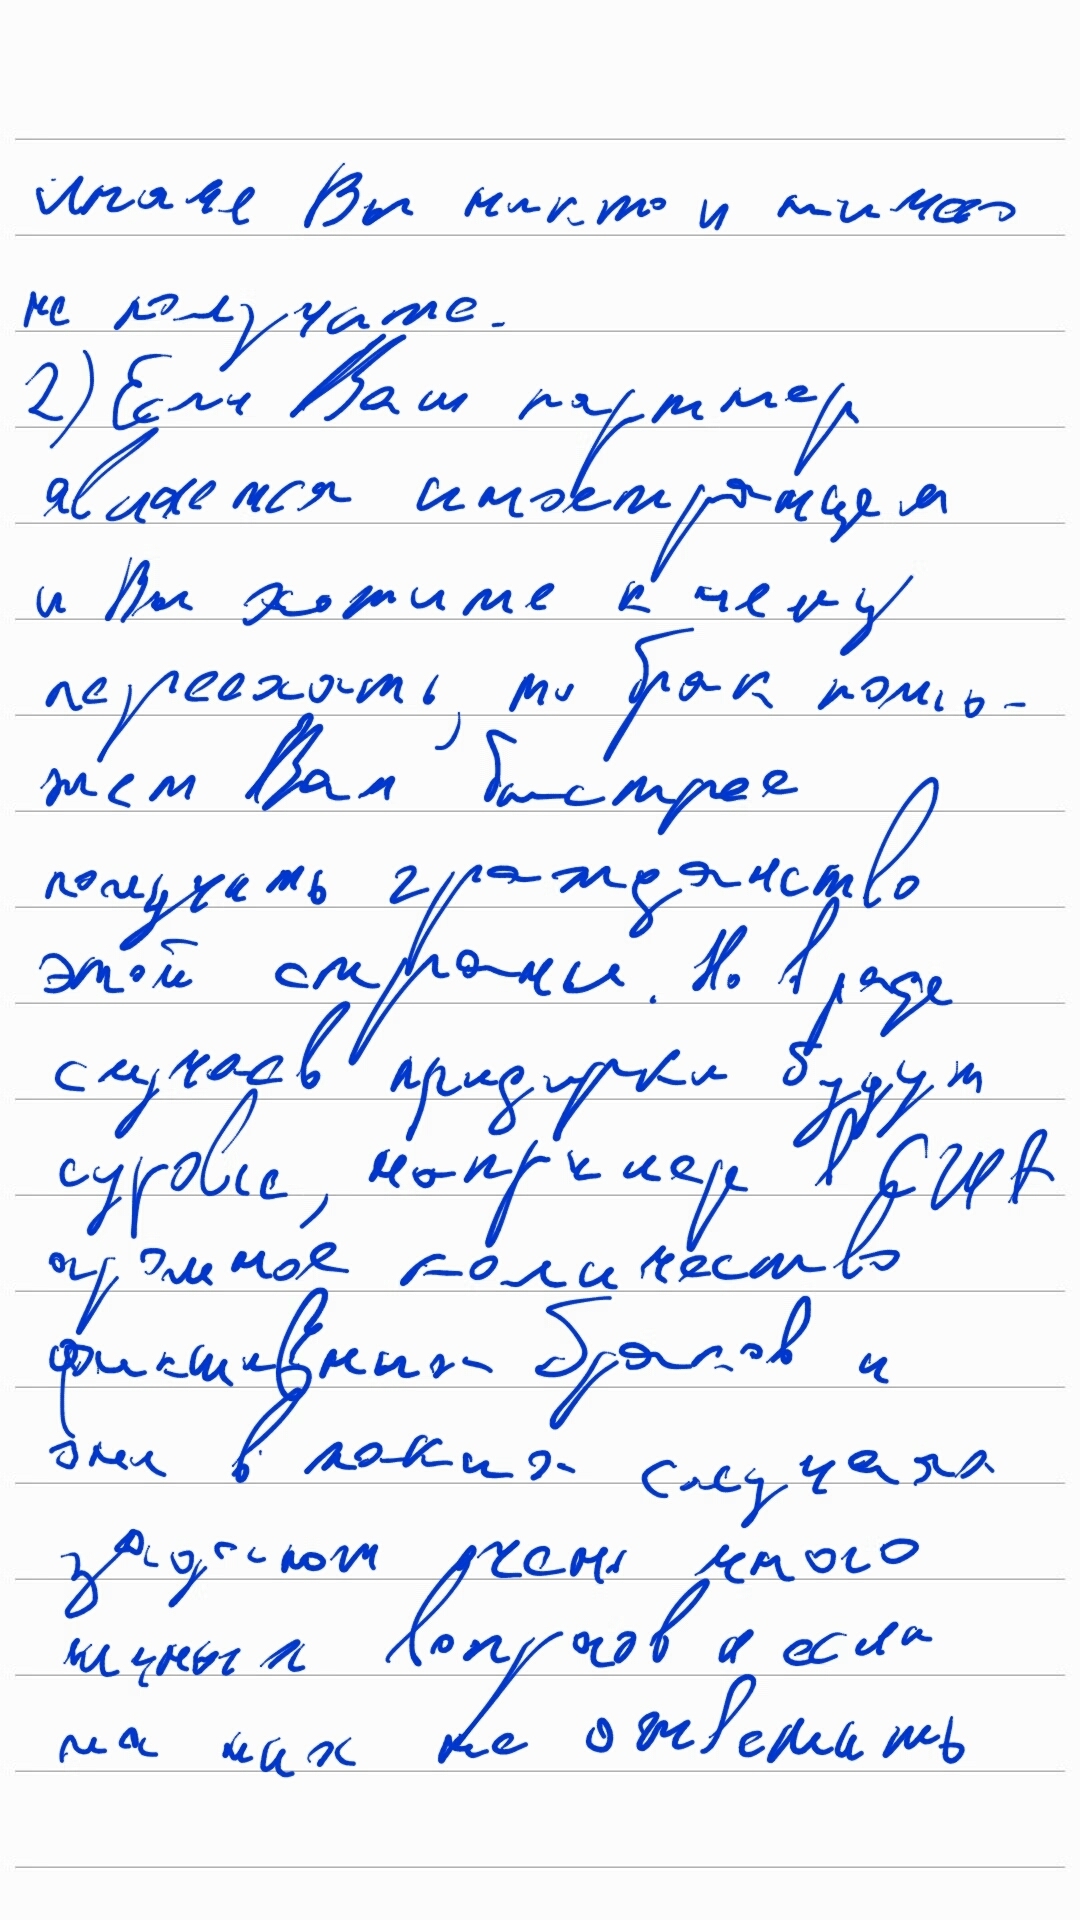 иначе Вы никто и ничего
не получите.
2) Если Ваш партнер
является иностранцем
и Вы хотите к нему
переехать, то брак помо-
жет Вам быстрее
получить гражданство
этой страны. Но в ряде
случаев придирки будут
суровые, например в США
огромное количество
фиктивных браков и
они в таких случаях
зададут очень много
личных вопросов и если
на них не ответить